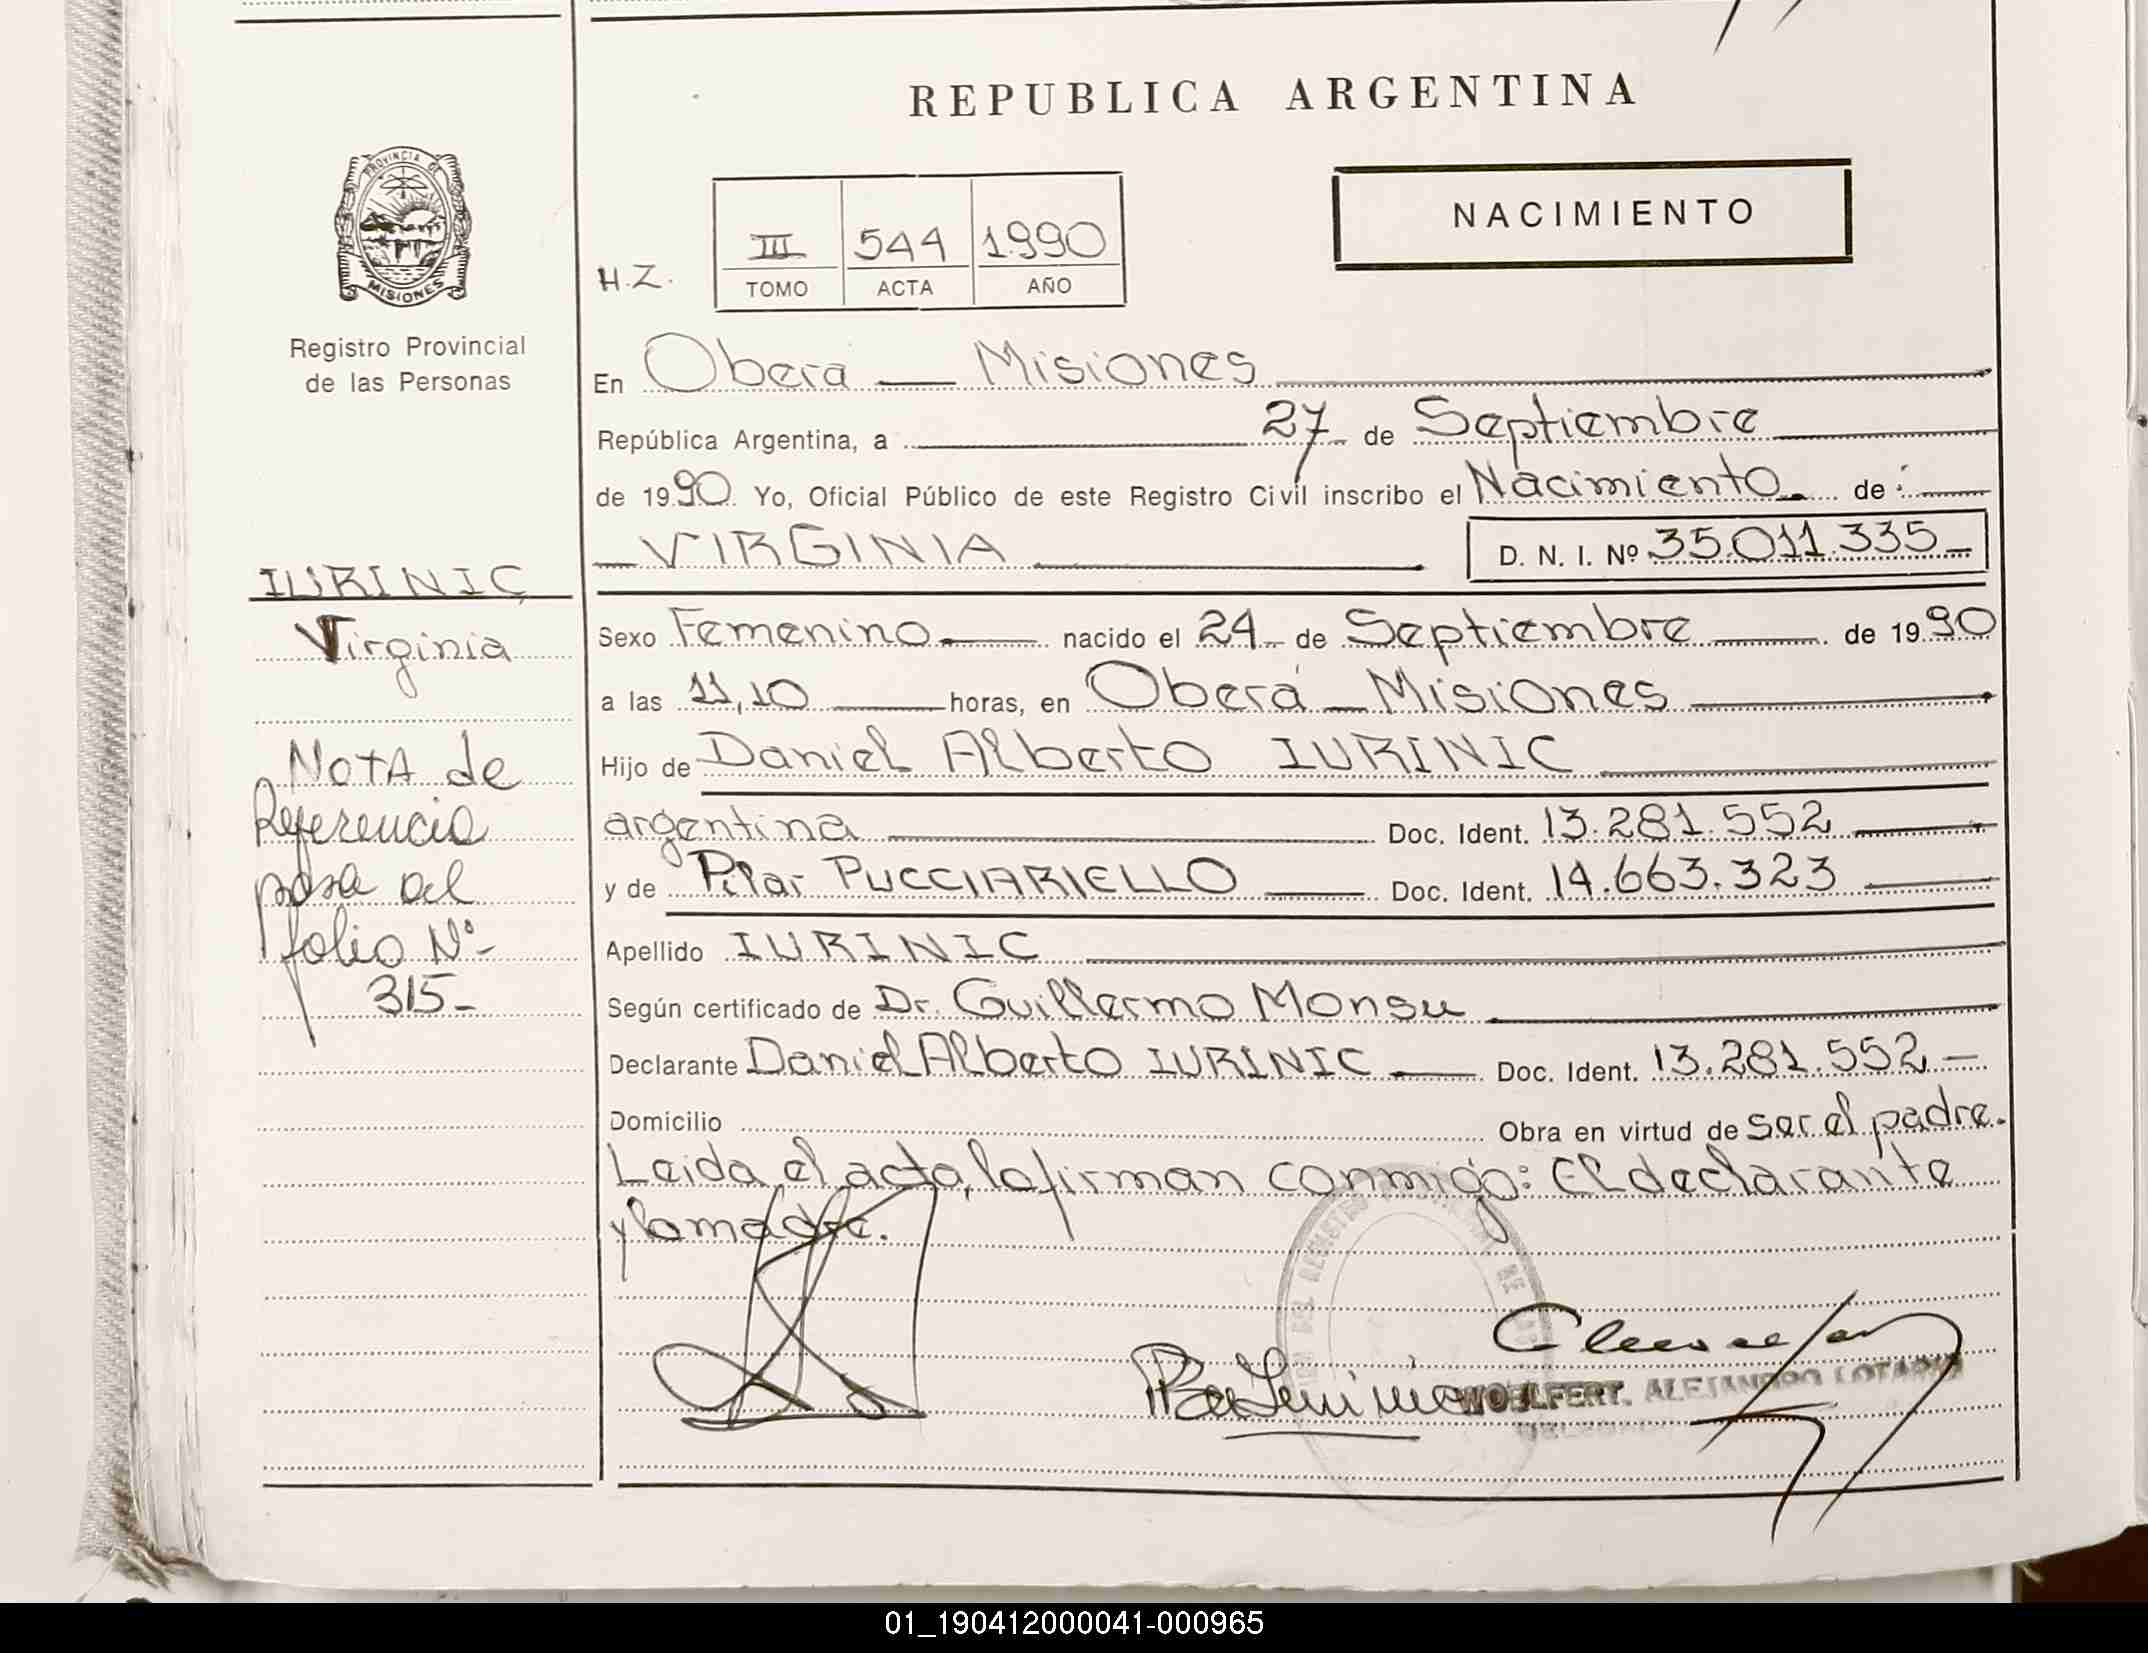 REPUBLICA ARGENTINA
PROVINCIA DE
MISIONES
Registro Provincial
de las Personas
NACIMIENTO
H.Z.
III 544 1.990
TOMO ACTA AÑO
En Oberá — Misiones
República Argentina, a 27 de Septiembre
de 19 90 Yo, Oficial Público de este Registro Civil inscribo el Nacimiento de:
VIRGINIA D. N. I. Nº 35.011.335
Sexo Femenino nacido el 24 de Septiembre de 19 90
a las 11,10 horas, en Oberá — Misiones
Hijo de Daniel Alberto IURINIC
argentina Doc. Ident. 13.281.552
y de Pilar PUCCIARIELLO Doc. Ident. 14.663.323
Apellido IURINIC
Según certificado de Dr. Guillermo Monsu
Declarante Daniel Alberto IURINIC Doc. Ident. 13.281.552
Domicilio Obra en virtud de ser el padre.
Leida el acta, la firman conmigo: El declarante
y la madre.
WOELFERT, ALEJANDRO LOTARIO
IURINIC
Virginia
NOTA de
Referencia
pasa al
folio Nº
315-
01_190412000041-000965